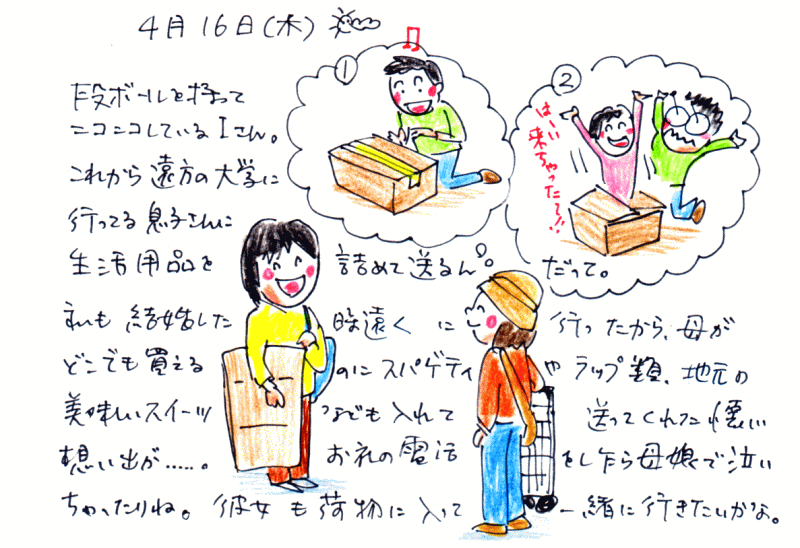 4月16日(木)
①
②
はーい
来ちゃったてへ!!
段ボールを持って
ニコニコしているIさん。
これから遠方の大学に
行ってる息子さんに
生活用品を 詰めて送るん だって。
私も結婚した時遠くに行ったから、母が
どこでも買えるのにスパゲティやラップ類、地元の
美味しいスイーツなども入れて送ってくれた懐かしい
想い出が……。お礼の電話をしたら母娘で泣い
ちゃったりね。彼女も荷物に入って一緒に行きたいかな。